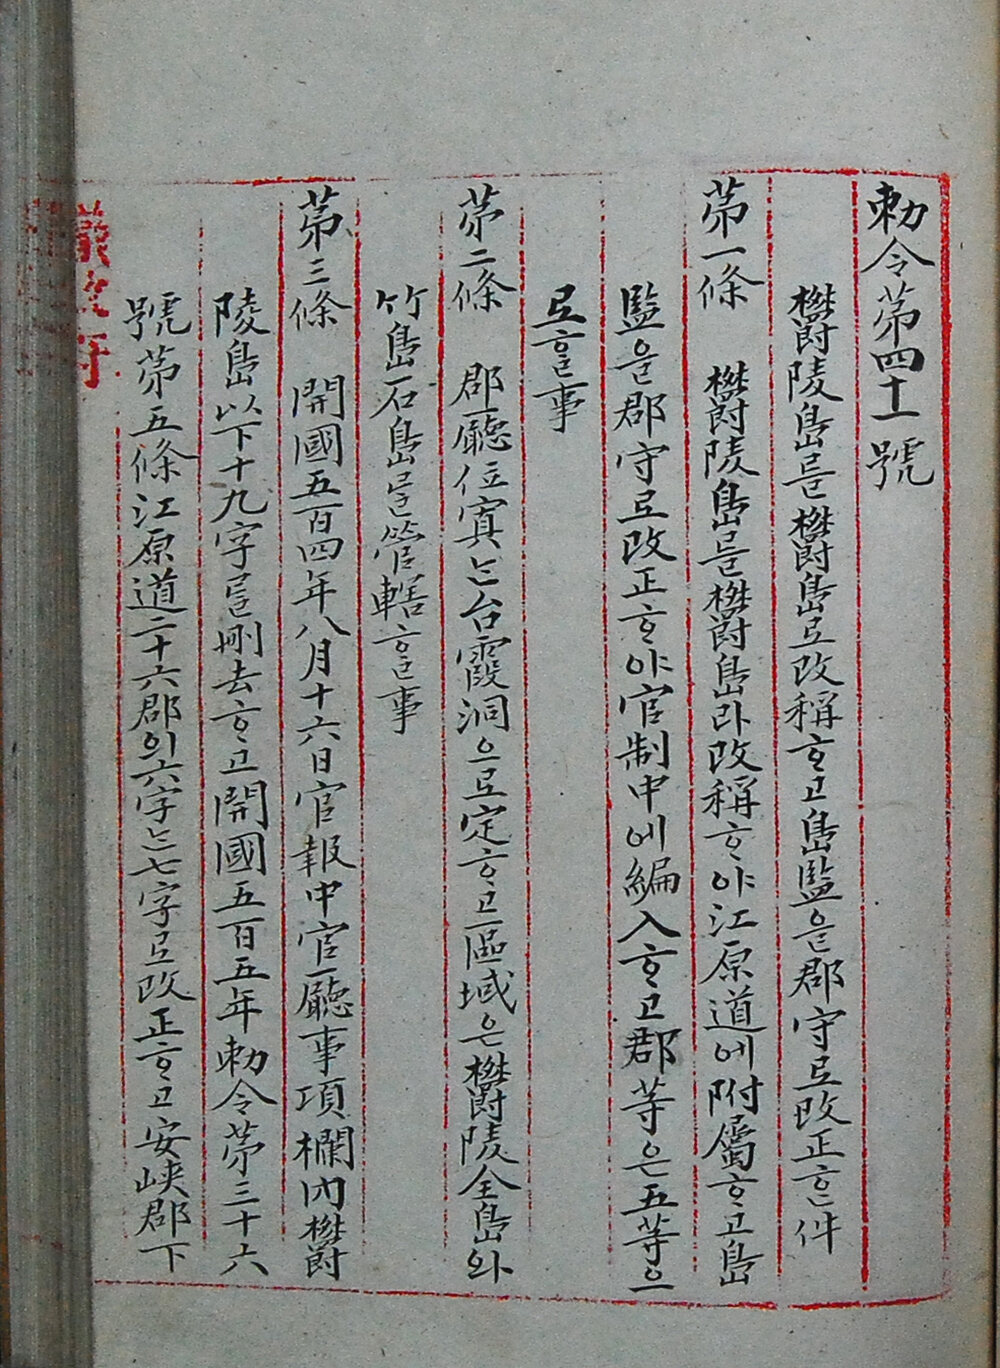 勅令第四十一號
欝陵島를欝島로改稱ᄒᆞ고島監을郡守로改正ᄒᆞᆫ件
第一條 欝陵島를欝島라改稱ᄒᆞ야江原道에附屬ᄒᆞ고島
監을郡守로改正ᄒᆞ야官制中에編入ᄒᆞ고郡等은五等으
로ᄒᆞᆯ事
第二條 郡廳位寘ᄂᆞᆫ台霞洞으로定ᄒᆞ고區域은欝陵全島와
竹島石島ᄅᆞᆯ管轄ᄒᆞᆯ事
第三條 開國五百四年八月十六日官報中官廳事項欄內欝
陵島以下十九字ᄅᆞᆯ刪去ᄒᆞ고開國五百五年勅令第三十六
號第五條江原道二十六郡의六字ᄂᆞᆫ七字로改正ᄒᆞ고安峽郡下
議政府